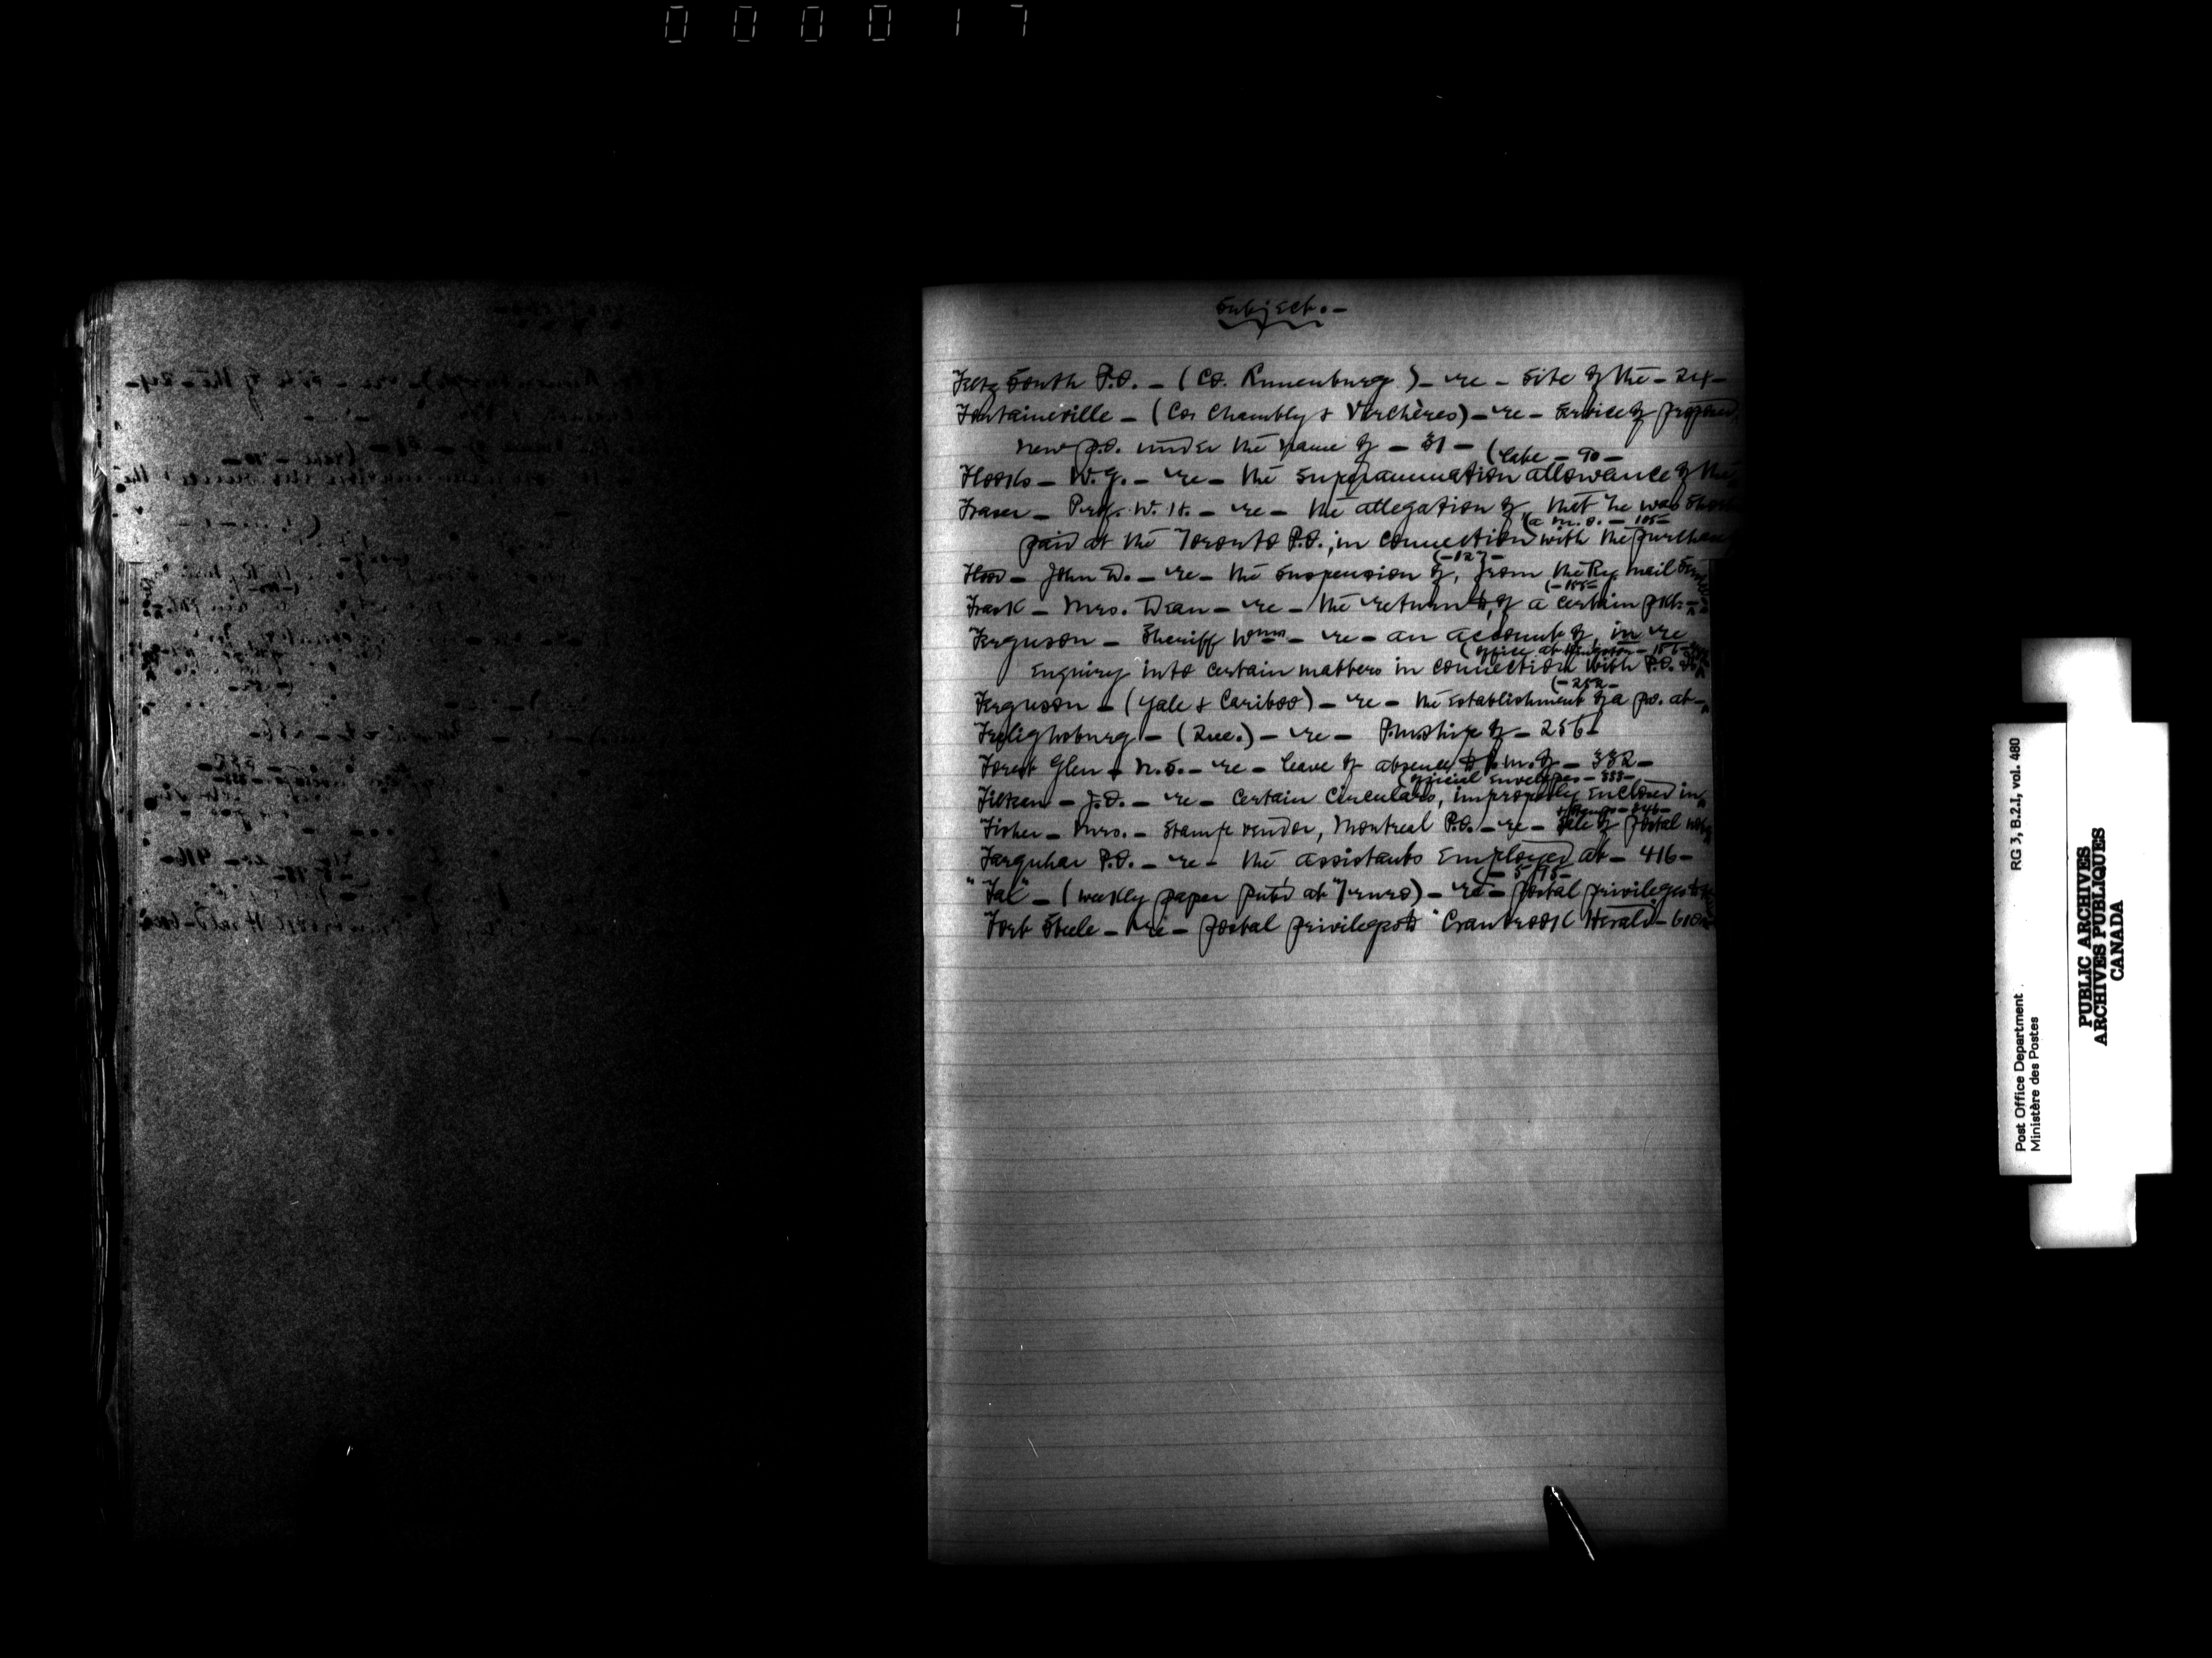 000017
Subject.-
Feltz South P.O. - (Co. Lunenburg) - re - site of the - 24 -
Fontaineville - (Cos Chambly & Verchères) - re - service of proposed
new p.o. under the name of - 31 -
(late - 90 -
- W.G. - re - the superannuation allowance of the
Fraser - Prof. W. H. - re - the allegation of, that he was short
(a m.o. - 105 -
paid at the Toronto P.O., in connection with the purchase
(- 127 -
Flood - John D. - re - the suspension of, from the Ry mail
(- 155 -
Frask - Mrs. Dean - re - the return to, of a certain
Ferguson - Sheriff Wm - re - an account of, in re
(office at
Enquiry into certain matters in connection with P.O.
(- 252 -
Ferguson - (Yale & Cariboo) - re - the establishment of a p.o. at -
Frelighsburg - (Que.) - re - P.mship of - 256 -
Forest Glen - N.S. - re - leave of absence to p.m. of - 332 -
(official envelopes - 333 -
- J.D. - re - certain circulars, improperly enclosed in
Fisher - Mrs. - stamp vendor, Montreal P.O. - re - sale of postal
Farquhar P.O. - re - the assistants employed at - 416 -
(- 595 -
"Fal" - (weekly paper pub'd at Truro) - re - postal privileges to
Fort Steele - re - postal privileges to "Cranbrook Herald - 610 -
Post Office Department
Ministère des Postes
RG 3, B.2.I, vol. 480
PUBLIC ARCHIVES
ARCHIVES PUBLIQUES
CANADA